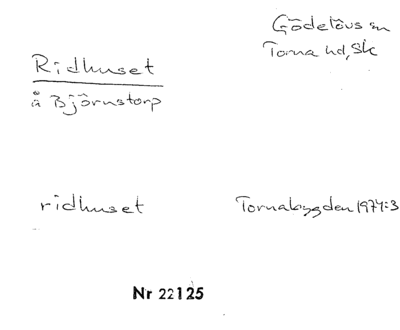 Gödelövs sn
Torna hd, Sk
Ridhuset
å Björnstorp
ridhuset
Tornabygden 1974:3
Nr 22125